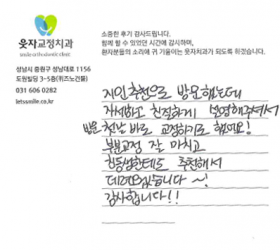 소중한 후기 감사드립니다.
함께 할 수 있었던 시간에 감사하며,
환자분들의 소리에 귀 기울이는 웃자치과가 되도록 하겠습니다.
웃자교정치과
성남시 중원구 성남대로 1156
도원빌딩 3-5층(위즈노건물)
031 606 0282
letssmile.co.kr
지인추천으로 방문했는데
자세하고 친절하게 설명해주셔서
방문 첫날 바로 교정하기로 했어요!
부분교정 잘 마치고
친동생한테도 추천해서
데려왔습니다~!
감사합니다!!